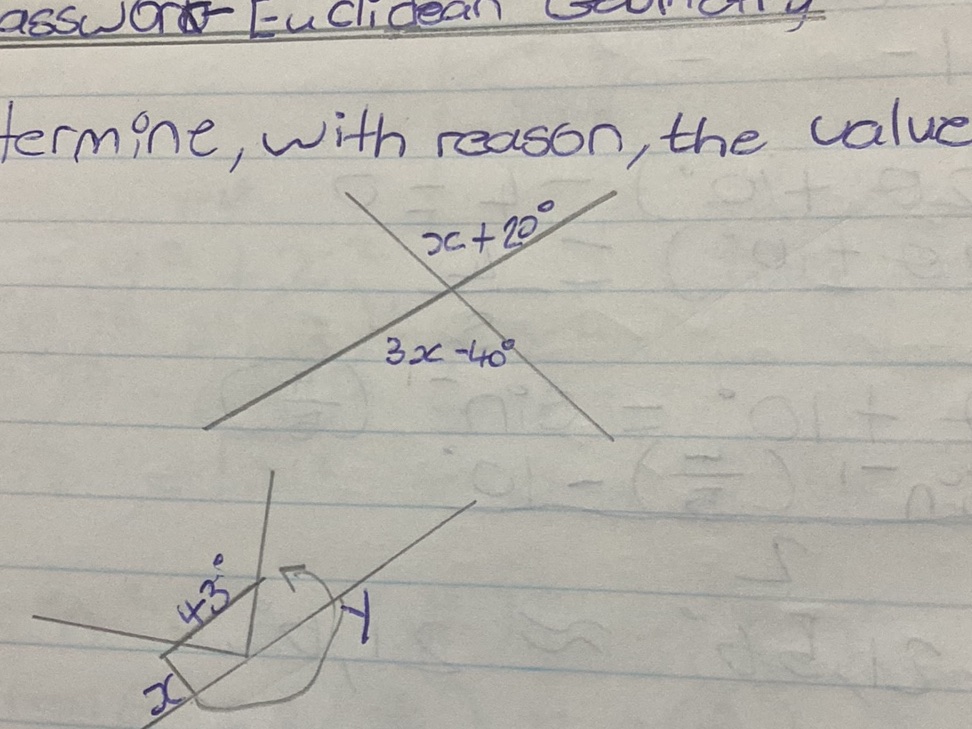 Euclidean Geometry
termine, with reason, the value
x+20°
3x-40°
43°
y
x